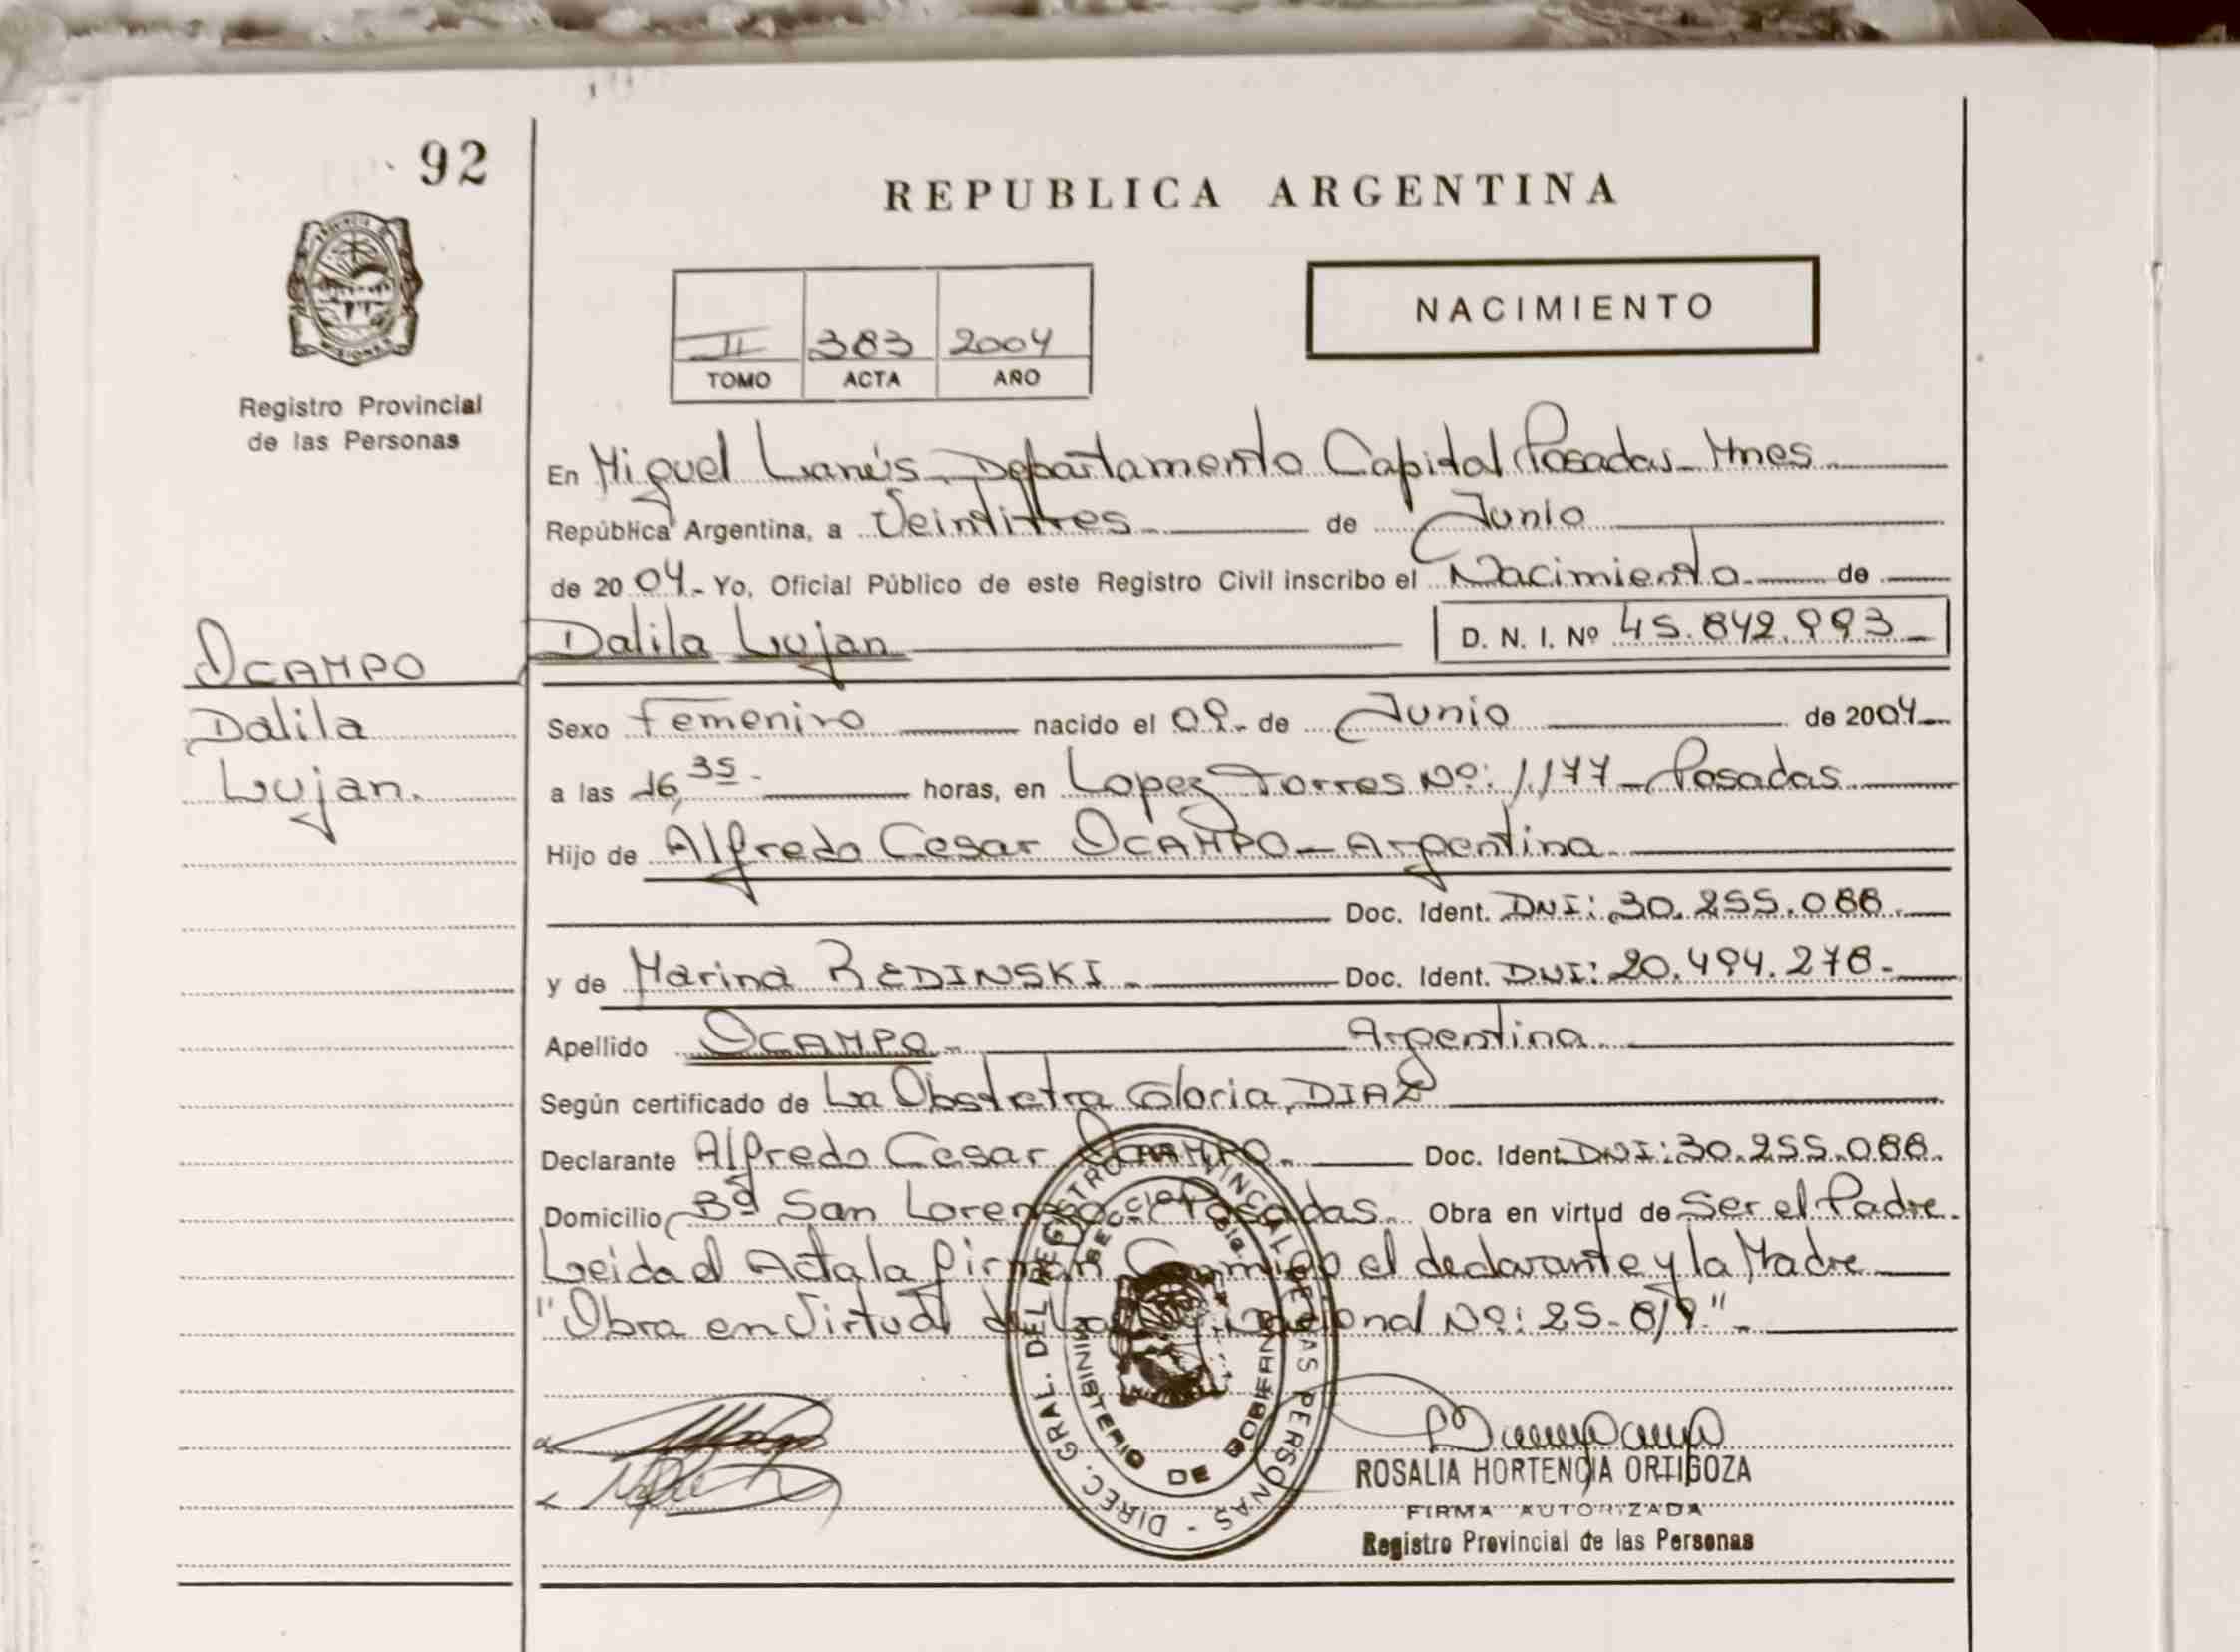 92
REPUBLICA ARGENTINA
NACIMIENTO
II 383 2004
TOMO ACTA AÑO
Registro Provincial
de las Personas
En Miguel Lanús Departamento Capital Posadas Mnes
República Argentina, a Veintitres de Junio
de 2004.- Yo, Oficial Público de este Registro Civil inscribo el Nacimiento de
Dalila Lujan D. N. I. Nº 45.842.993
OCAMPO
Dalila
Lujan.
Sexo Femenino nacido el 09 de Junio de 2004
a las 16,35 horas, en Lopez Torres Nº: 1.177 - Posadas
Hijo de Alfredo Cesar OCAMPO - Argentina
Doc. Ident. DNI: 30.255.088
y de Marina REDINSKI Doc. Ident. DNI: 20.494.278
Apellido OCAMPO Argentina
Según certificado de La Obstetra Gloria, DIAZ
Declarante Alfredo Cesar OCAMPO Doc. Ident. DNI: 30.255.088.
Domicilio Bº San Lorenzo - Posadas Obra en virtud de Ser el Padre.
Leida el Acta la firman Conmigo el declarante y la Madre
"Obra en Virtud de Ley Nacional Nº: 25.819"
DIREC. GRAL. DEL REGISTRO PROVINCIAL DE LAS PERSONAS
MINISTERIO DE GOBIERNO
ROSALIA HORTENCIA ORTIGOZA
FIRMA AUTORIZADA
Registro Provincial de las Personas